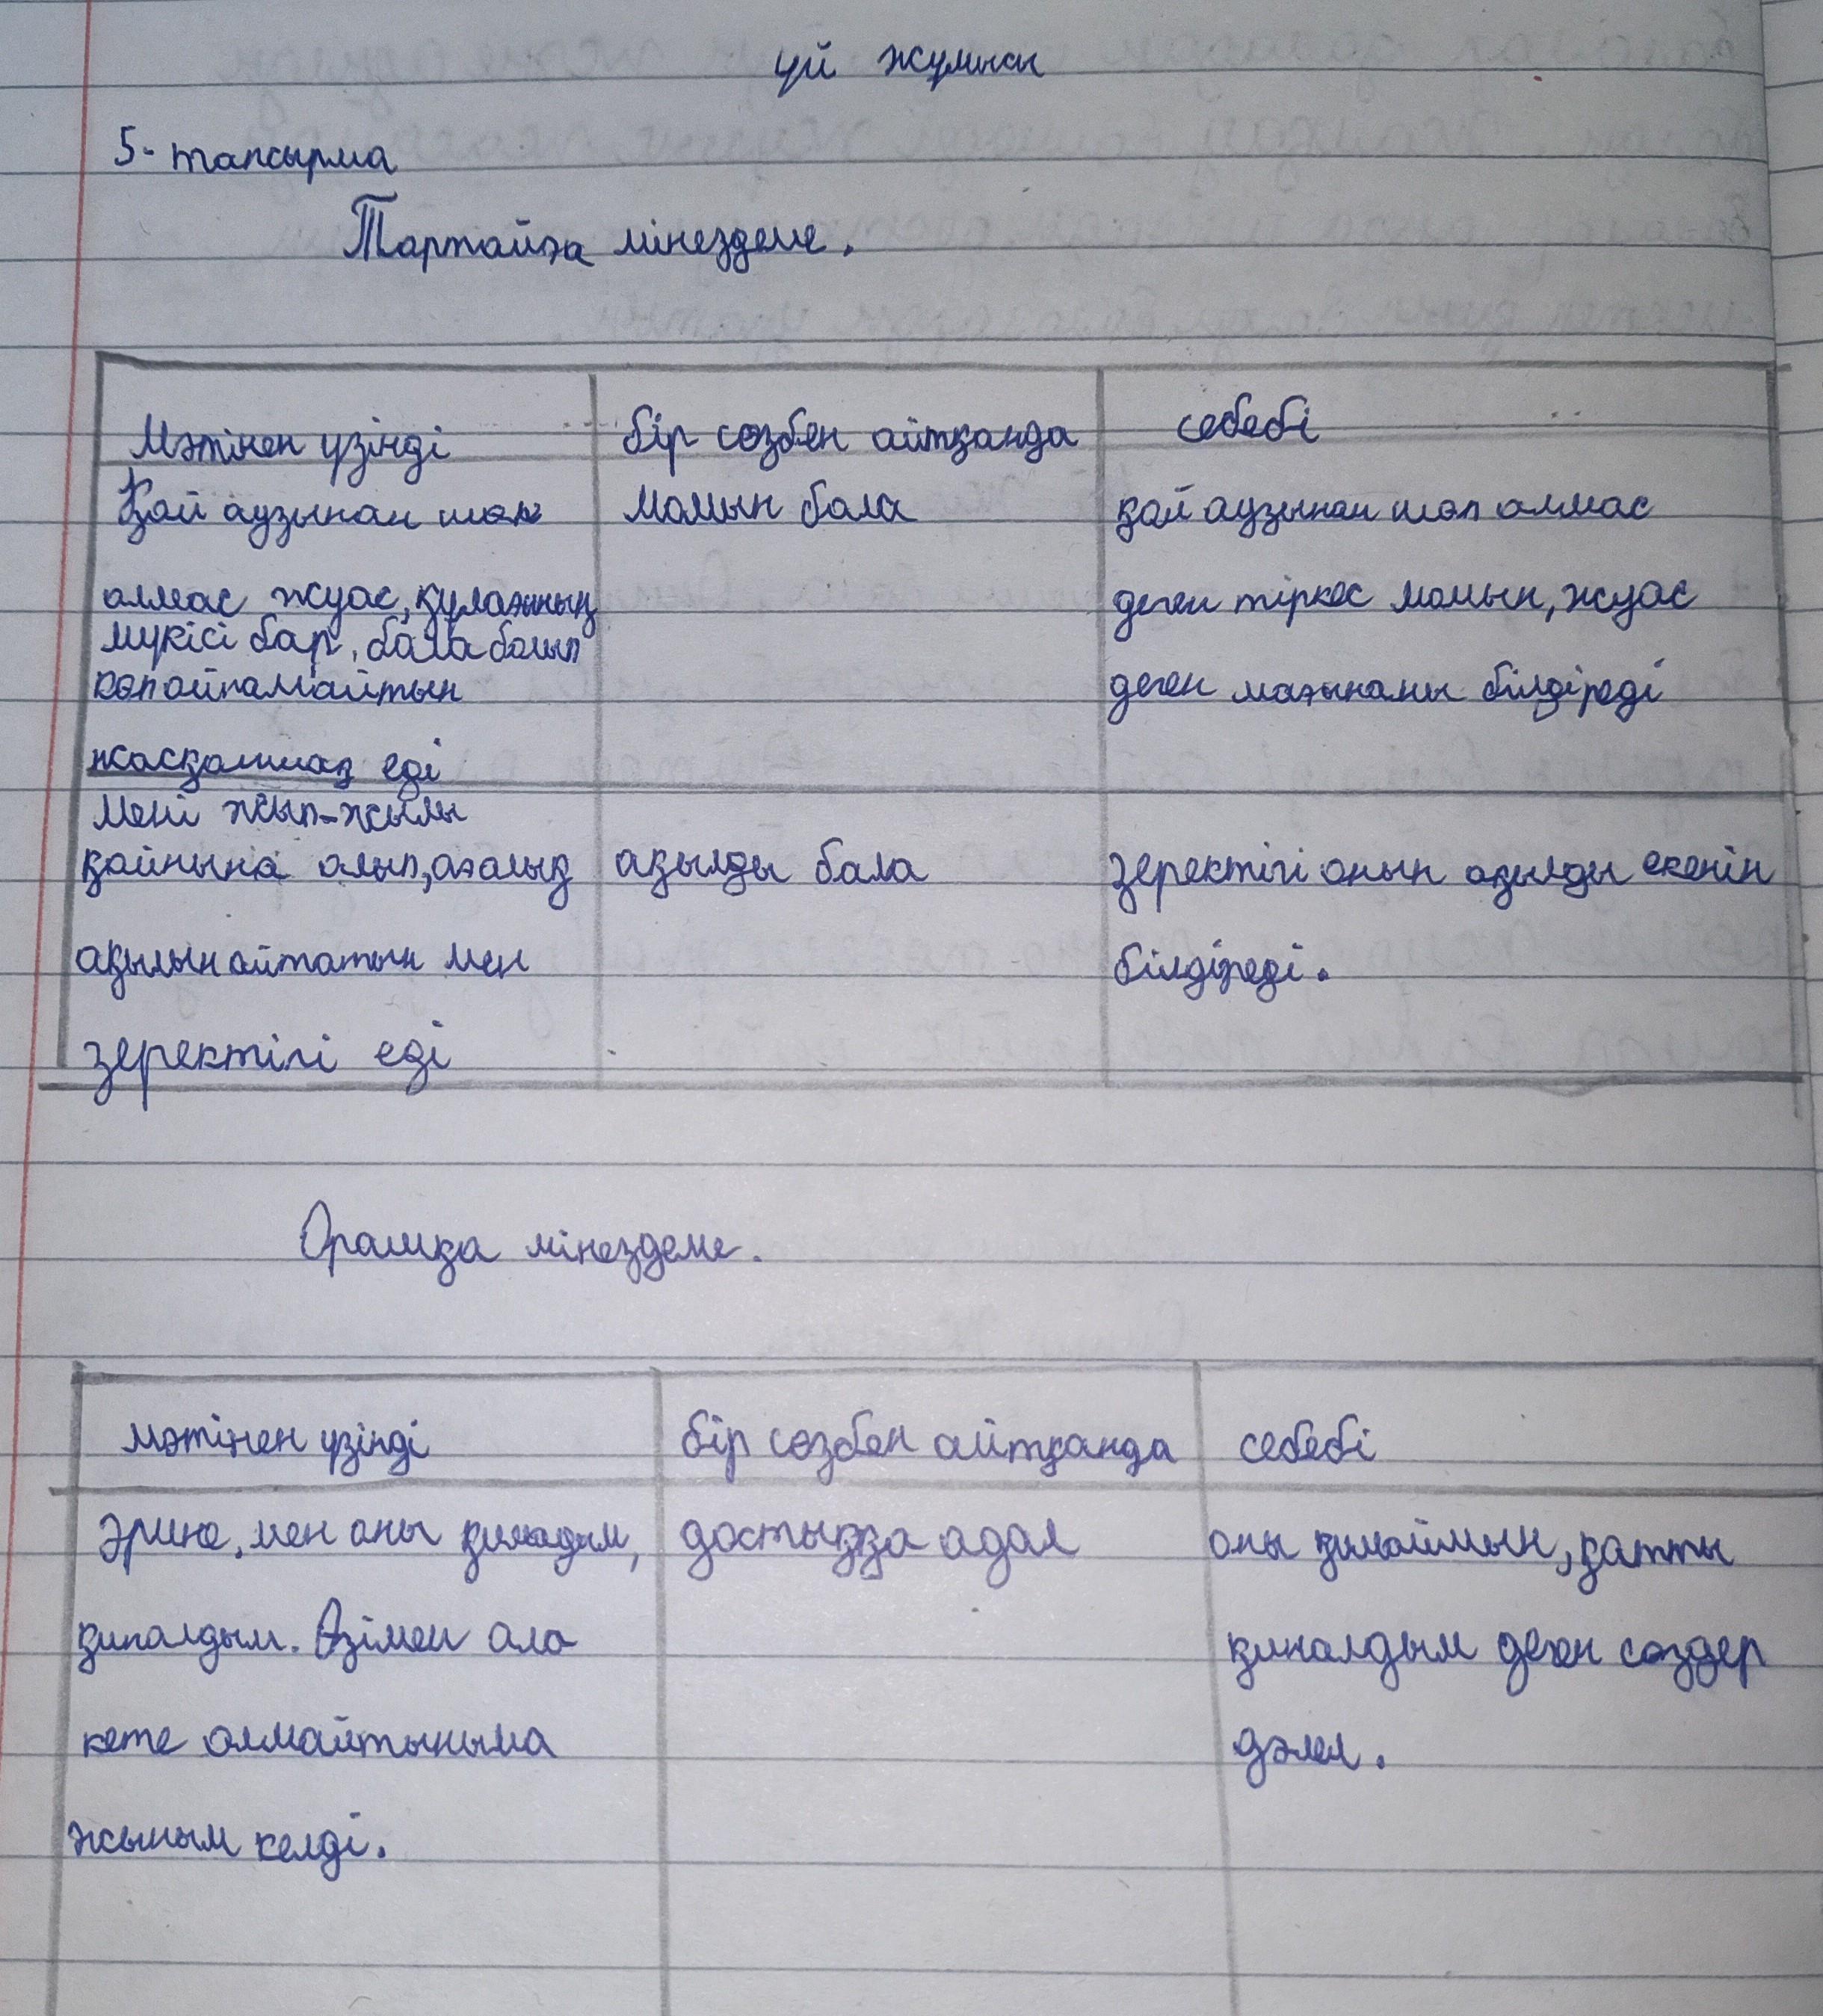 үй жұмысы
5- тапсырма
Тартайға мінездеме.
Мәтінен үзінді
бір сөзбен айтқанда
себебі
Қой аузынан шөп
алмас жуас, құлағының
мүкісі бар, бала болып
көп ойнамайтын
жасқаншақ еді
момын бала
қой аузынан шөп алмас
деген тіркес момын, жуас
деген мағынаны білдіреді
Мені жып-жылы
қойнына алып, ағалық
ақылын айтатын мен
зеректігі еді
ақылды бала
зеректігі оның ақылды екенін
білдіреді.
Орашқа мінездеме.
мәтінен үзінді
бір сөзбен айтқанда
себебі
әрине, мен оны қимадым,
қиналдым. Өзімен ала
кете алмайтыныма
жыным келді.
достыққа адал
оны қимаймын, қатты
қиналдым деген сөздер
дәлел.